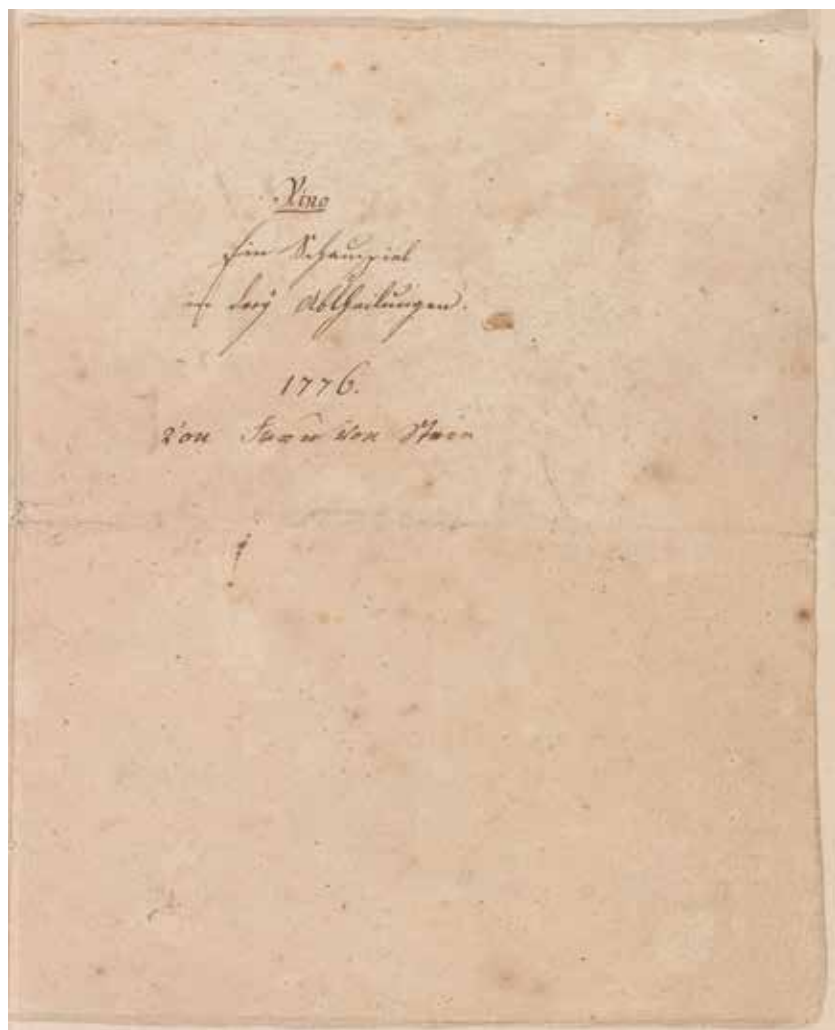 Rino
Ein Schauspiel
in drey Abtheilungen.
1776.
Von Frau von Stein